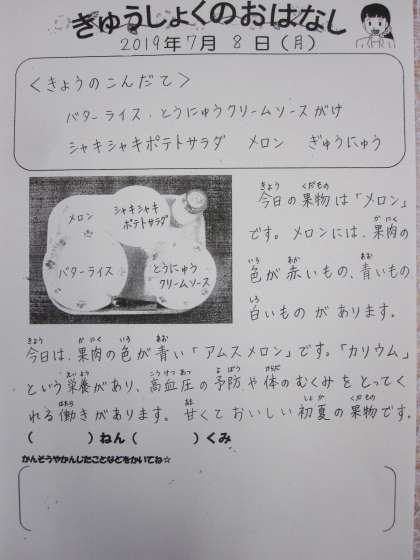 きゅうしょくのおはなし
2019年7月8日(月)
<きょうのこんだて>
バターライス・とうにゅうクリームソースがけ
シャキシャキポテトサラダ メロン ぎゅうにゅう
メロン
シャキシャキ
ポテトサラダ
バターライス
とうにゅう
クリームソース
今日の果物は「メロン」
です。メロンには、果肉の
色が赤いもの、青いもの
白いものがあります。
今日は、果肉の色が青い「アムスメロン」です。「カリウム」
という栄養があり、高血圧の予防や体のむくみをとってく
れる働きがあります。甘くておいしい初夏の果物です。
( )ねん( )くみ
かんそうやかんじたことなどをかいてね☆